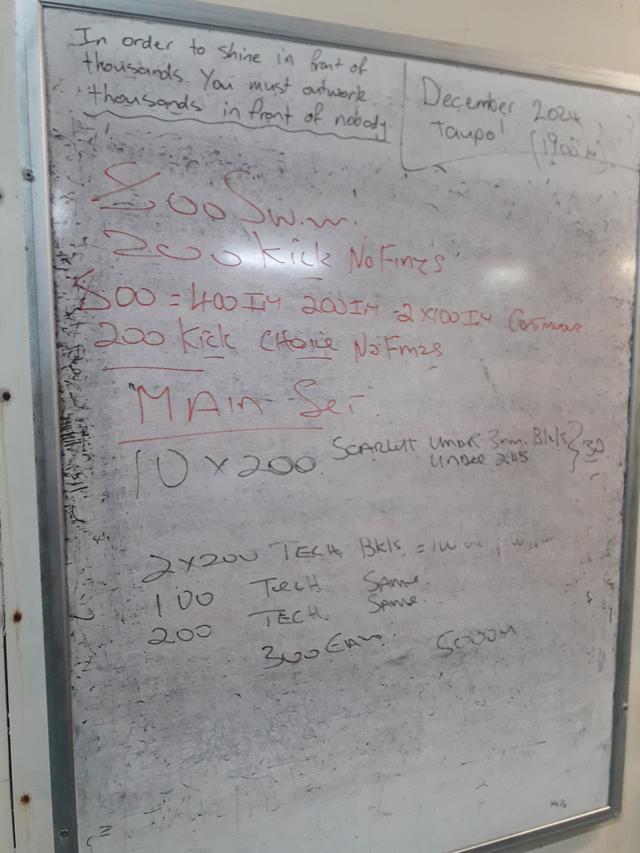 In order to shine in front of
thousands. You must outwork
thousands in front of nobody
December 2024
Taupo
(1900
800 Swim.
200 Kick No Fins
800 = 400 IM 200 IM = 2x100 IM Continuous
200 Kick Choice No Fins
MAIN SET
10 x 200 SCARLETT UNDER 3min. Bk/s } 30
UNDER 2.45
2x200 TECH Bk/s =
100 TECH SAME
200 TECH. SAME
300 Easy. 5000M